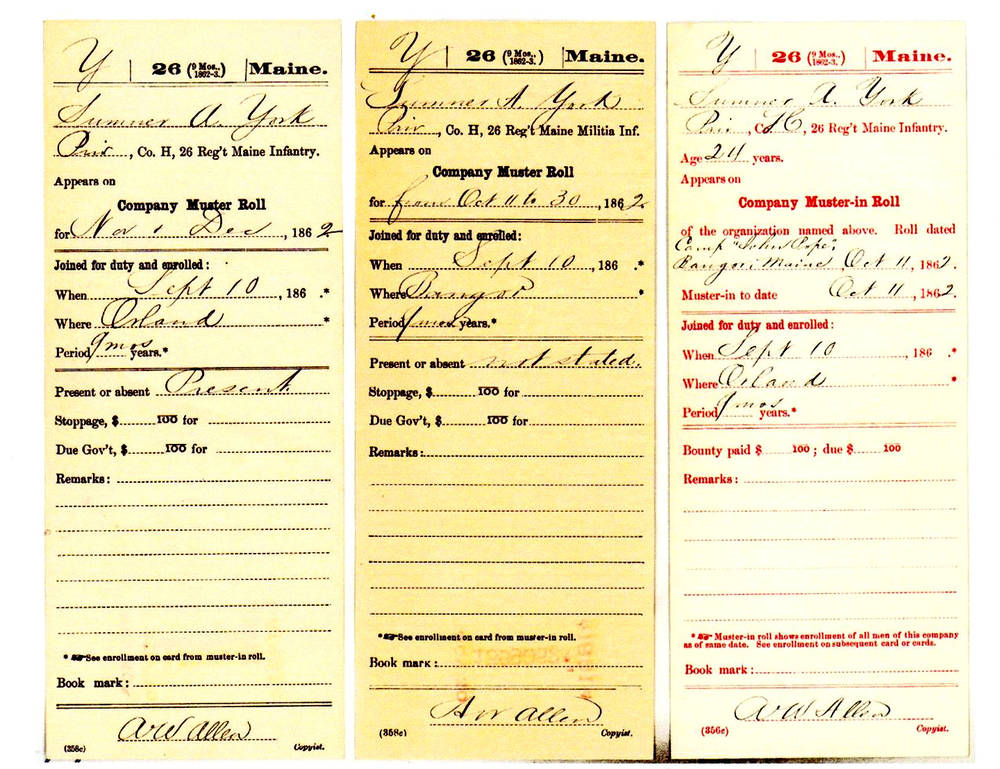 Y | 26 (9 Mos., 1862-3.) | Maine.
Sumner A. York
Priv, Co. H, 26 Reg't Maine Infantry.
Appears on
Company Muster Roll
for Nov & Dec, 1862
Joined for duty and enrolled:
When Sept 10, 186 .*
Where Orland *
Period 9 mos years.*
Present or absent Present.
Stoppage, $ 100 for
Due Gov't, $ 100 for
Remarks:
* See enrollment on card from muster-in roll.
Book mark:
A W Allen
(358c) Copyist.
Y | 26 (9 Mos., 1862-3.) | Maine.
Sumner A. York
Priv, Co. H, 26 Reg't Maine Militia Inf.
Appears on
Company Muster Roll
for from Oct 11 to 30, 1862
Joined for duty and enrolled:
When Sept 10, 186 .*
Where Bangor *
Period 9 mos years.*
Present or absent not stated.
Stoppage, $ 100 for
Due Gov't, $ 100 for
Remarks:
* See enrollment on card from muster-in roll.
Book mark:
A W Allen
(358c) Copyist.
Y | 26 (9 Mos., 1862-3.) | Maine.
Sumner A. York
Priv, C H, 26 Reg't Maine Infantry.
Age 24 years.
Appears on
Company Muster-in Roll
of the organization named above. Roll dated
Camp "John Pope",
Bangor, Maine Oct 11, 1862.
Muster-in to date Oct 11, 1862.
Joined for duty and enrolled:
When Sept 10, 186 .*
Where Orland *
Period 9 mos years.*
Bounty paid $ 100; due $ 100
Remarks:
* Muster-in roll shows enrollment of all men of this company
as of same date. See enrollment on subsequent card or cards.
Book mark:
A W Allen
(356c) Copyist.